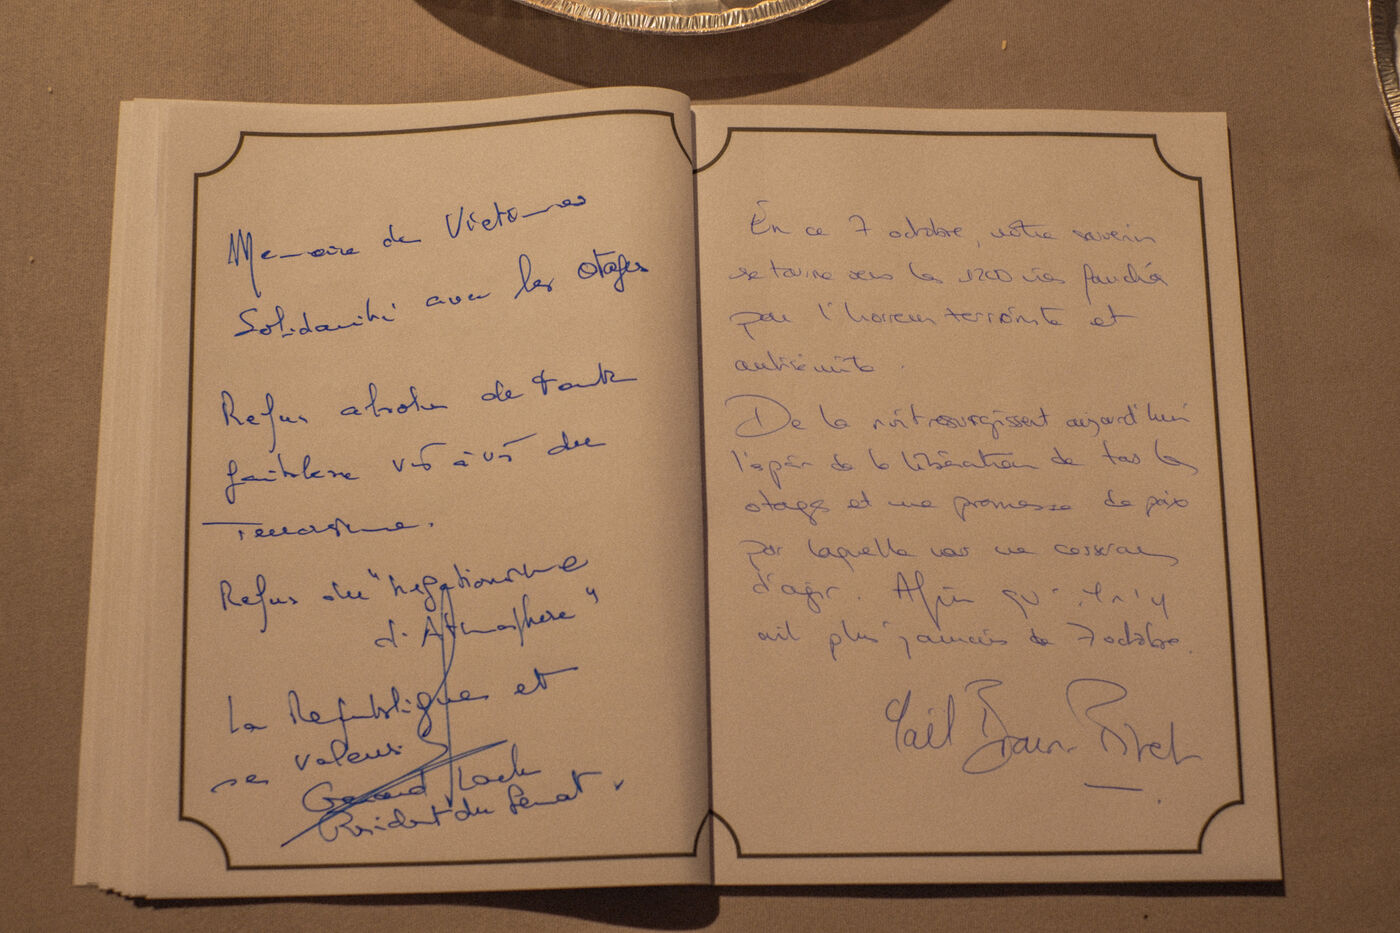 Mémoire des Victimes
Solidarité avec les otages
Refus absolu de toute
faiblesse vis à vis du
Terrorisme.
Refus du "négationnisme
d'Atmosphère"
La République et
ses valeurs
Gérard Larcher
Président du Sénat.
En ce 7 octobre, notre souvenir
se tourne vers les 1200 vies fauchées
par l'horreur terroriste et
antisémite.
De la nuit resurgissent aujourd'hui
l'espoir de la libération de tous les
otages et une promesse de paix
par laquelle nous ne cesserons
d'agir. Afin qu'il n'y
ait plus jamais de 7 octobre.
Yaël Braun-Pivet